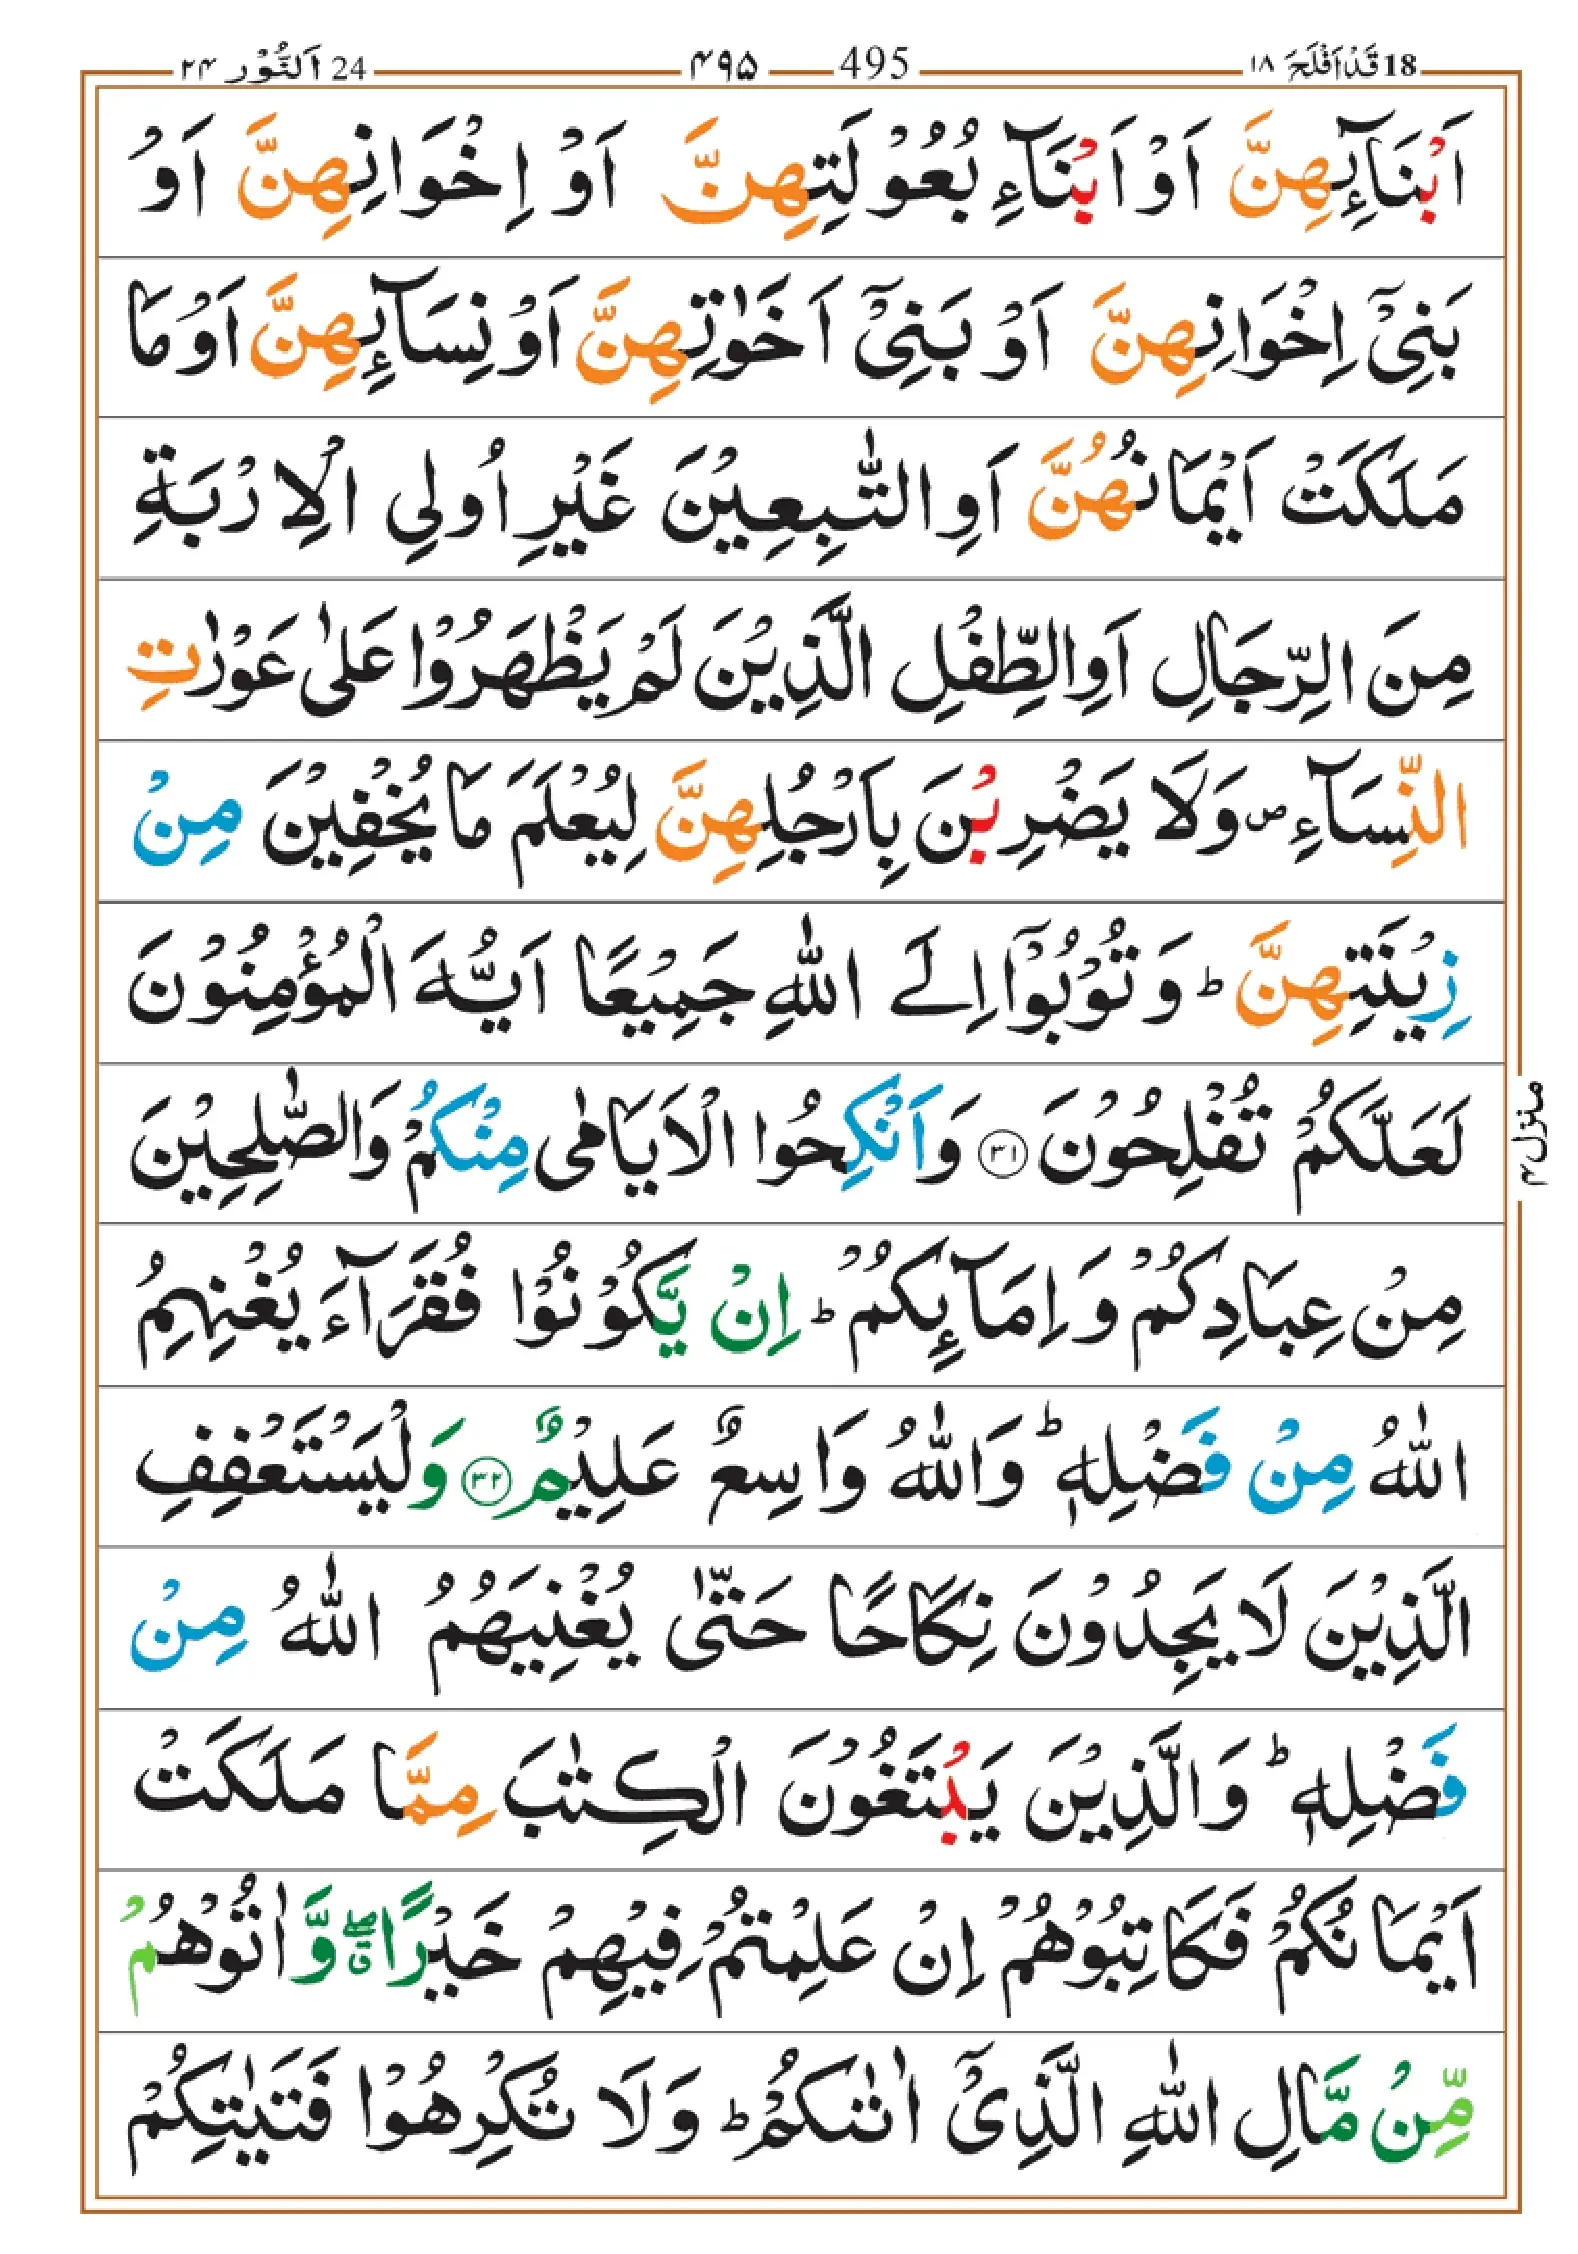 18 قَدۡ اَفۡلَحَ ۱۸ 495 ۴۹۵ 24 اَلنُّوۡر ۲۴
اَبۡنَآئِهِنَّ اَوۡ اَبۡنَآءِ بُعُوۡلَتِهِنَّ اَوۡ اِخۡوَانِهِنَّ اَوۡ
بَنِىۡۤ اِخۡوَانِهِنَّ اَوۡ بَنِىۡۤ اَخَوٰتِهِنَّ اَوۡ نِسَآئِهِنَّ اَوۡ مَا
مَلَكَتۡ اَيۡمَانُهُنَّ اَوِ التّٰبِعِيۡنَ غَيۡرِ اُولِى الۡاِرۡبَةِ
مِنَ الرِّجَالِ اَوِ الطِّفۡلِ الَّذِيۡنَ لَمۡ يَظۡهَرُوۡا عَلٰى عَوۡرٰتِ
النِّسَآءِ ۪ وَلَا يَضۡرِبۡنَ بِاَرۡجُلِهِنَّ لِيُعۡلَمَ مَا يُخۡفِيۡنَ مِنۡ
زِيۡنَتِهِنَّ ؕ وَتُوۡبُوۡۤا اِلَى اللّٰهِ جَمِيۡعًا اَيُّهَ الۡمُؤۡمِنُوۡنَ
لَعَلَّكُمۡ تُفۡلِحُوۡنَ ۝۳۱ وَاَنۡكِحُوا الۡاَيَامٰى مِنۡكُمۡ وَالصّٰلِحِيۡنَ
منزل ۴
مِنۡ عِبَادِكُمۡ وَاِمَآئِكُمۡ ؕ اِنۡ يَّكُوۡنُوۡا فُقَرَآءَ يُغۡنِهِمُ
اللّٰهُ مِنۡ فَضۡلِهٖ ؕ وَاللّٰهُ وَاسِعٌ عَلِيۡمٌ ۝۳۲ وَلۡيَسۡتَعۡفِفِ
الَّذِيۡنَ لَا يَجِدُوۡنَ نِكَاحًا حَتّٰى يُغۡنِيَهُمُ اللّٰهُ مِنۡ
فَضۡلِهٖ ؕ وَالَّذِيۡنَ يَبۡتَغُوۡنَ الۡكِتٰبَ مِمَّا مَلَكَتۡ
اَيۡمَانُكُمۡ فَكَاتِبُوۡهُمۡ اِنۡ عَلِمۡتُمۡ فِيۡهِمۡ خَيۡرًا ۖۗ وَّاٰتُوۡهُمۡ
مِّنۡ مَّالِ اللّٰهِ الَّذِىۡۤ اٰتٰٮكُمۡ ؕ وَلَا تُكۡرِهُوۡا فَتَيٰتِكُمۡ